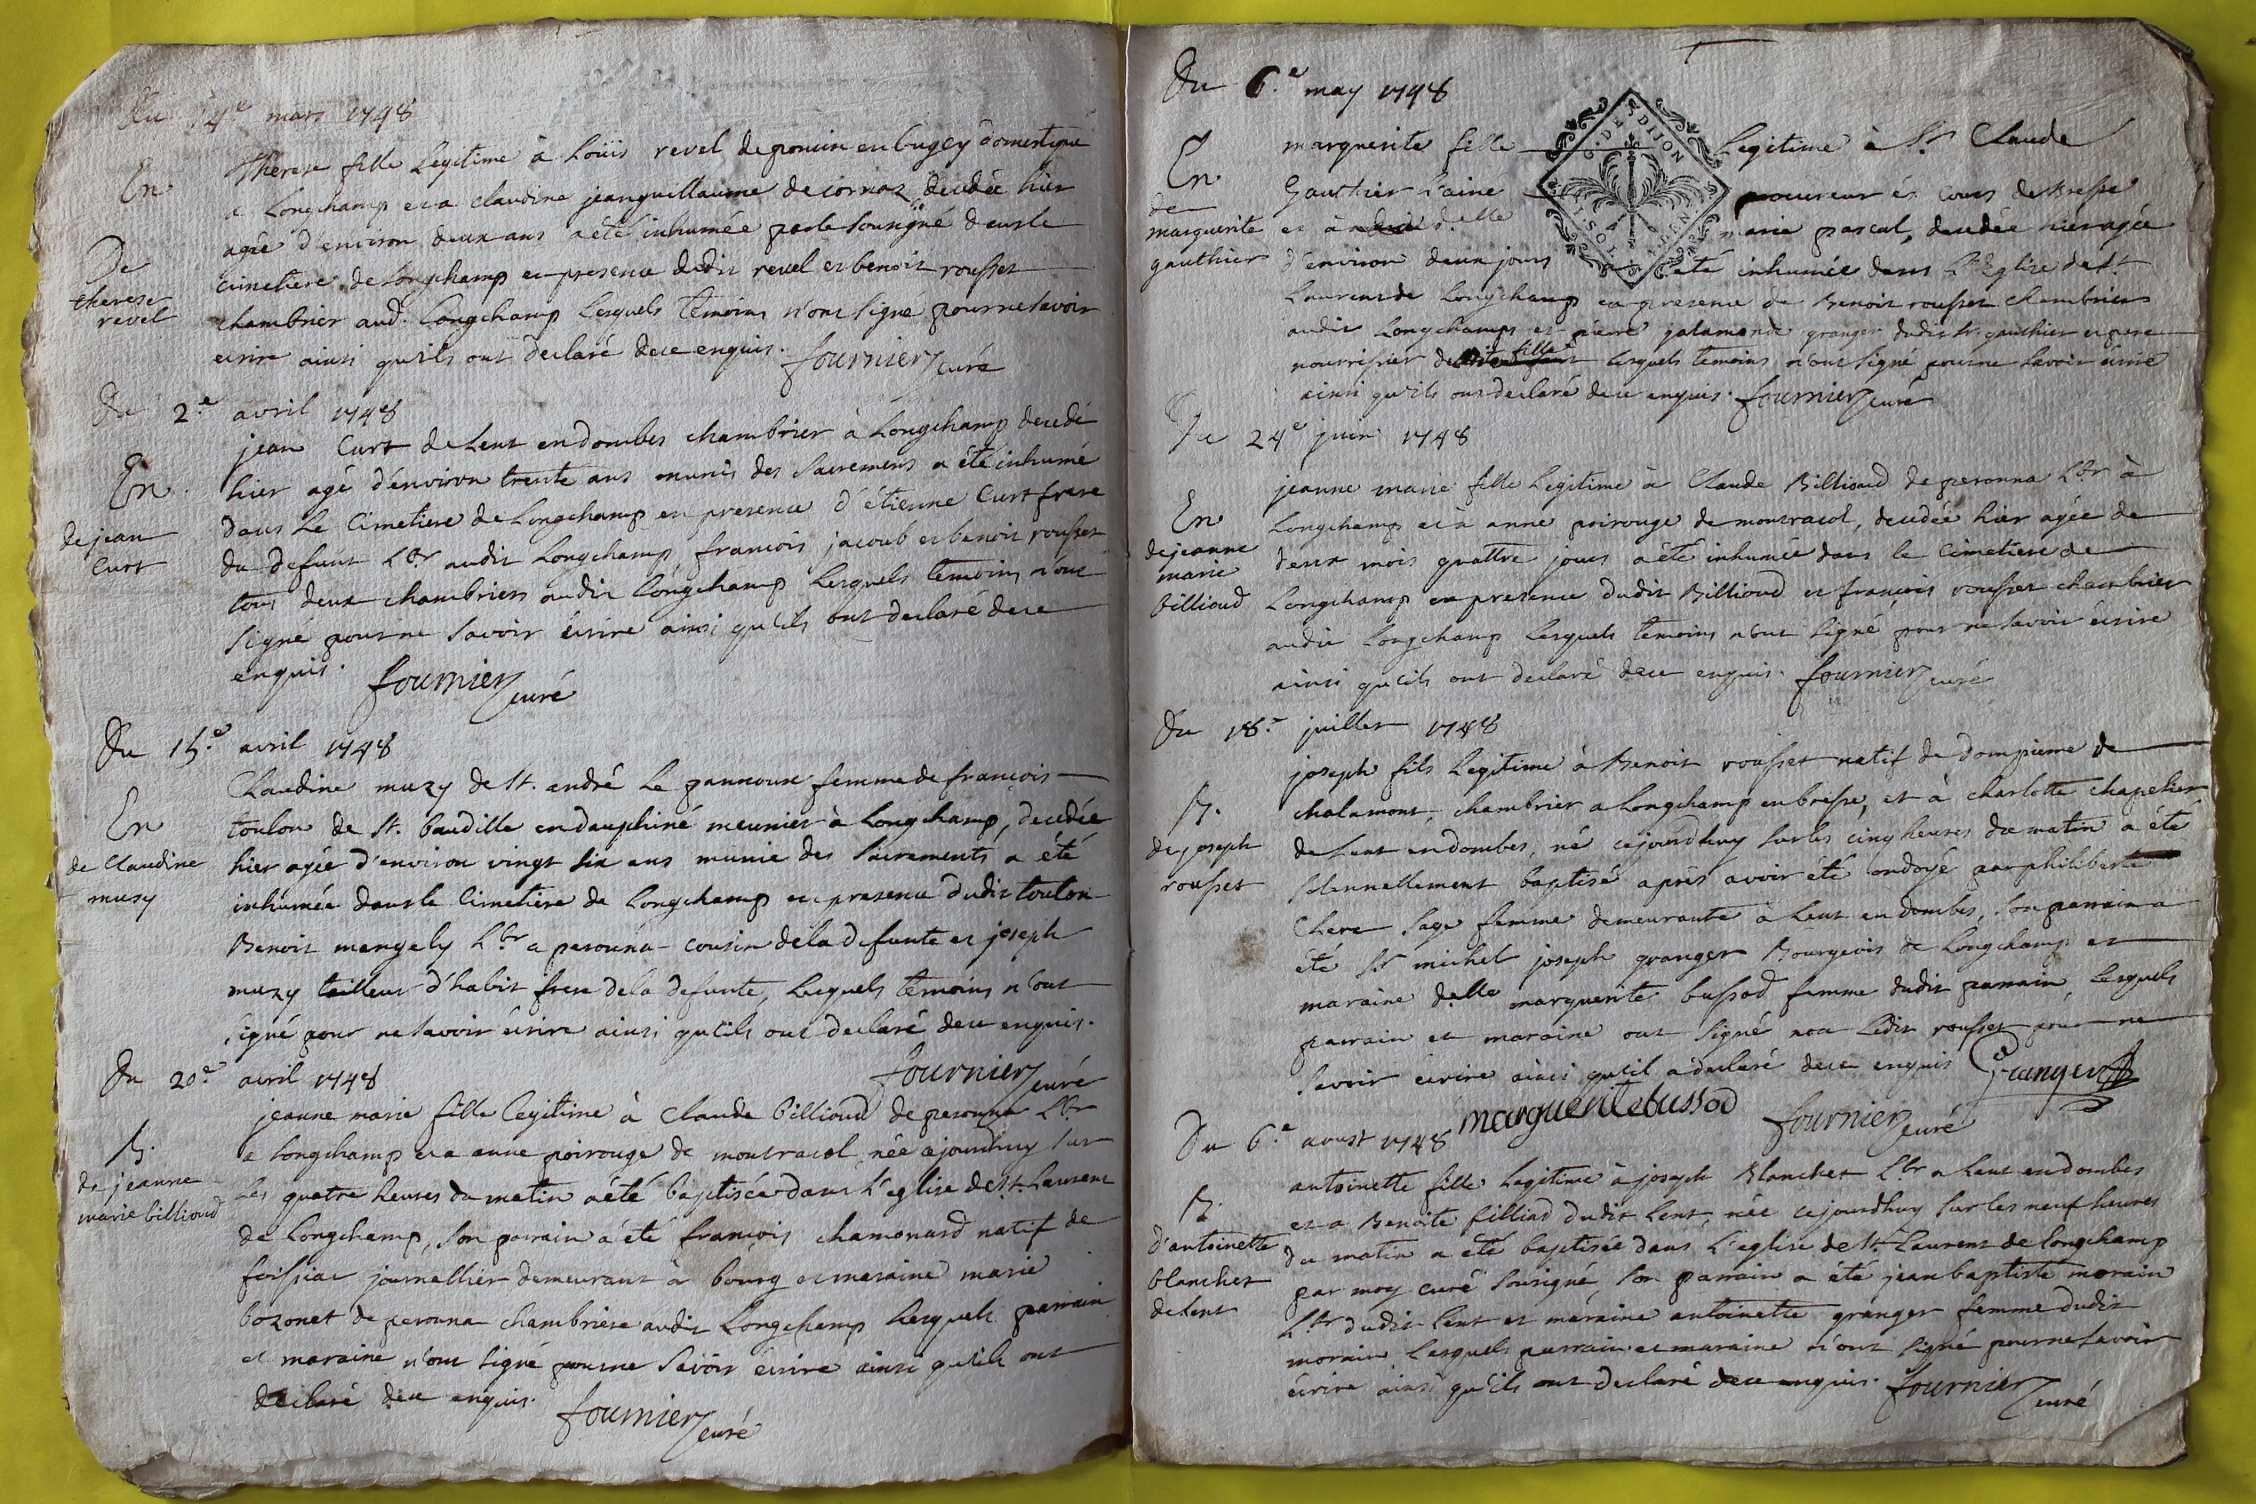 Du 14e mars 1748
En
De
therese
revel
Therese fille legitime à Loüis revel de poncin en bugey domestique
a Longchamp et a claudine jeanguillaume de cornaz, decedée hier
agée d'environ deux ans a été inhumée par le sousigné dans le
cimetiere de Longchamp en presence dudit revel et benoit rousset
chambrier aud. Longchamp Lesquels temoins n'ont signé pour ne savoir
ecrire ainsi qu'ils ont declaré de ce enquis. fournier curé
Du 2.e avril 1748
En
de jean
Curt
jean Curt de Lent en dombes chambrier à Longchamp decedé
hier agé d'environ trente ans munis des Sacremens a été inhumé
dans Le Cimetiere de Longchamp en presence d'étienne Curt frere
du defunt L.br audit Longchamp, francois jacoub et benoit rousset
tous deux chambriers audit Longchamp Lesquels temoins n'ont
signé pour ne savoir écrire ainsi qu'ils ont declaré de ce
enquis. fournier curé
Du 15.e avril 1748
En
de Claudine
muzy
Claudine muzy de St. andré Le pannoux femme de françois
toulon de St. baudille en dauphiné meunier à Longchamp, decedée
hier agée d'environ vingt six ans munie des sacrements a été
inhumée dans le Cimetiere de Longchamp en presence dudit toulon
Benoit mengely L.br a peronna cousin de la defunte et joseph
muzy tailleur d'habit frere de la defunte, Lesquels temoins n'ont
signé pour ne savoir écrire ainsi qu'ils ont declaré de ce enquis.
fournier curé
Du 20.e avril 1748
B.
de jeanne
marie billioud
jeanne marie fille legitime à Claude billioud de peronna L.br
a Longchamp et a anne poirouge de montracol, née cejourdhuy sur
Les quatre heures du matin a été baptisée dans L'eglise de St. Laurent
de Longchamp, son parrain a été françois chamonard natif de
foissiac journallier demeurant à bourg et maraine marie
bozonet de peronna chambriere audit Longchamp Lesquels parrain
et maraine n'ont signé pour ne savoir écrire ainsi qu'ils ont
declaré de ce enquis. fournier curé
Du 6.e may 1748
G. DES DIJON
En
de
marguerite
gauthier
marguerite fille legitime à Sr. Claude
Gauthier L'ainé procureur és cours de Bresse
et à d.elle marie pascal, decedée hier agée
d'environ deux jours a été inhumée dans L'Eglise de St.
Laurent de Longchamp en presence de Benoit rousset chambrier
audit Longchamp et pierre jalamonde granger dudit Sr. gauthier et pere
nourrissier de fille Lesquels temoins n'ont signé pour ne savoir écrire
ainsi qu'ils ont declaré de ce enquis. fournier curé
Du 24e juin 1748
En
de jeanne
marie
billioud
jeanne marie fille legitime à Claude Billioud de peronna L.br à
Longchamp et à anne poirouge de montracol, decedée hier agée de
deux mois quattre jours a été inhumée dans le cimetiere de
Longchamp en presence dudit Billioud et françois rousset chambrier
audit Longchamp Lesquels temoins n'ont signé pour ne savoir écrire
ainsi qu'ils ont declaré de ce enquis. fournier curé
Du 18.e juillet 1748
B.
de joseph
rousset
joseph fils legitime à Benoit rousset natif de dompierre de
chalamont, chambrier a Longchamp en bresse, et à charlotte chapelier
de Lent en dombes, né cejourdhuy sur les cinq heures du matin a été
solennellement baptisé après avoir été ondoyé par philiberte
Clere Sage femme demeurante à Lent en dombes, son parrain a
été Sr. michel joseph granger Bourgeois de Longchamp et
maraine d.elle marguerite bussod femme dudit parrain, Lesquels
parrain et maraine ont signé non Ledit rousset pour ne
savoir écrire ainsi qu'il a declaré de ce enquis Granger
marguerite bussod fournier curé
Du 6.e aoust 1748
B.
d'antoinette
blanchet
de Lent
antoinette fille legitime à joseph Blanchet L.br a Lent en dombes
et a Benoite filliod dudit Lent, née cejourdhuy sur les neuf heures
du matin a été baptisée dans L'eglise de St. Laurent de Longchamp
par moy curé sousigné, son parrain a été jean baptiste morain
L.br dudit Lent et maraine antoinette granger femme dudit
morain, Lesquels parrain et maraine n'ont signé pour ne savoir
écrire ainsi qu'ils ont declaré de ce enquis. fournier curé